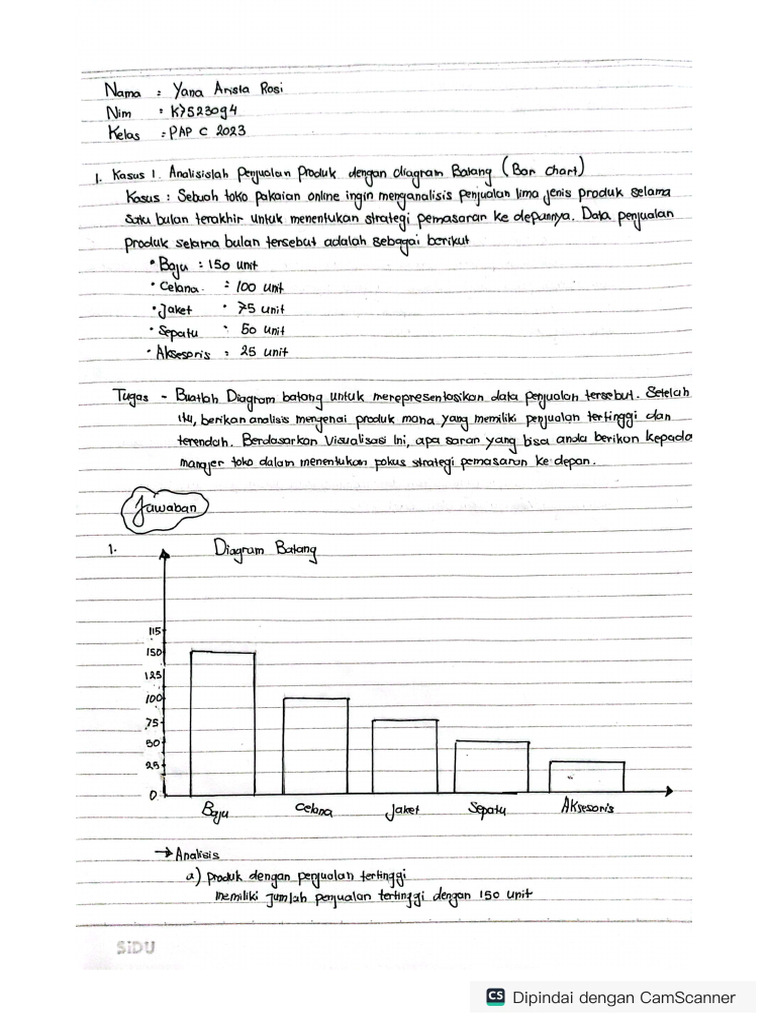 Nama : Yana Arista Rosi
Nim : K7523094
Kelas : PAP C 2023
1. Kasus 1. Analisislah Penjualan Produk dengan diagram Batang (Bar chart)
Kasus : Sebuah toko pakaian online ingin menganalisis penjualan lima jenis produk selama
satu bulan terakhir untuk menentukan strategi pemasaran ke depannya. Data penjualan
produk selama bulan tersebut adalah sebagai berikut
• Baju : 150 unit
• Celana : 100 unit
• Jaket : 75 unit
• Sepatu : 50 unit
• Aksesoris : 25 unit
Tugas - Buatlah Diagram batang untuk merepresentasikan data penjualan tersebut. Setelah
itu, berikan analisis mengenai produk mana yang memiliki penjualan tertinggi dan
terendah. Berdasarkan Visualisasi Ini, apa saran yang bisa anda berikan kepada
manajer toko dalam menentukan pokus strategi pemasaran ke depan.
Jawaban
1. Diagram Batang
115
150
125
100
75
50
25
0
Baju Celana Jaket Sepatu Aksesoris
→ Analisis
a) Produk dengan penjualan tertinggi
Memiliki Jumlah penjualan tertinggi dengan 150 unit
SiDU
CS Dipindai dengan CamScanner